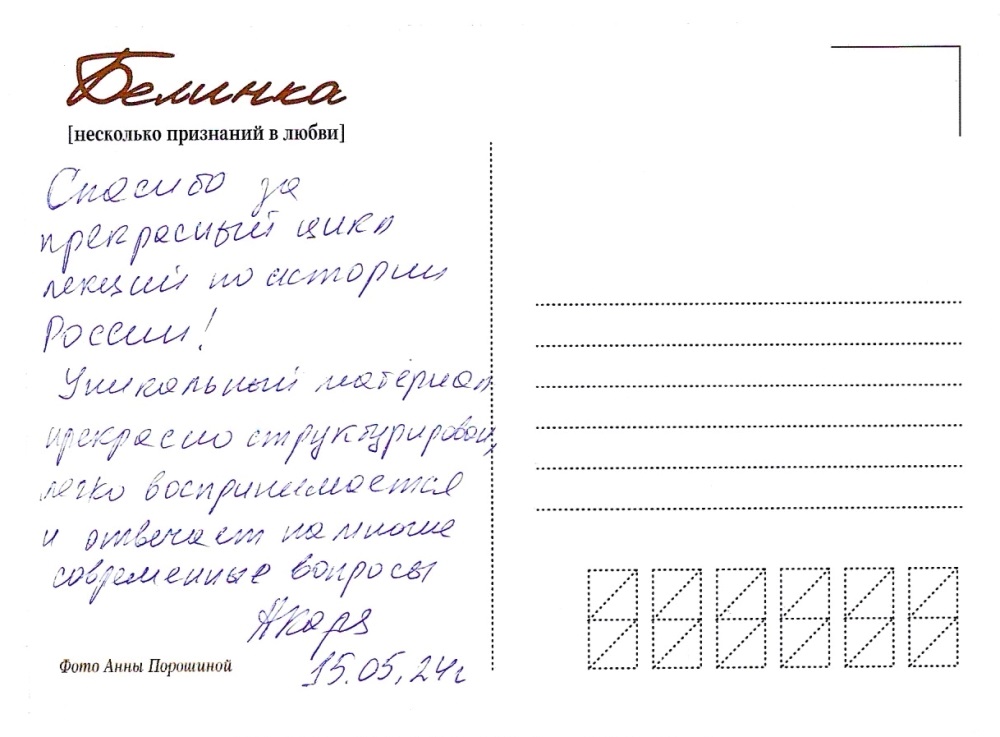 Белинка
[несколько признаний в любви]
Спасибо за
прекрасный цикл
лекций по истории
России!
Уникальный материал
прекрасно структурирован,
легко воспринимается
и отвечает на многие
современные вопросы
15.05.24г
Фото Анны Порошиной